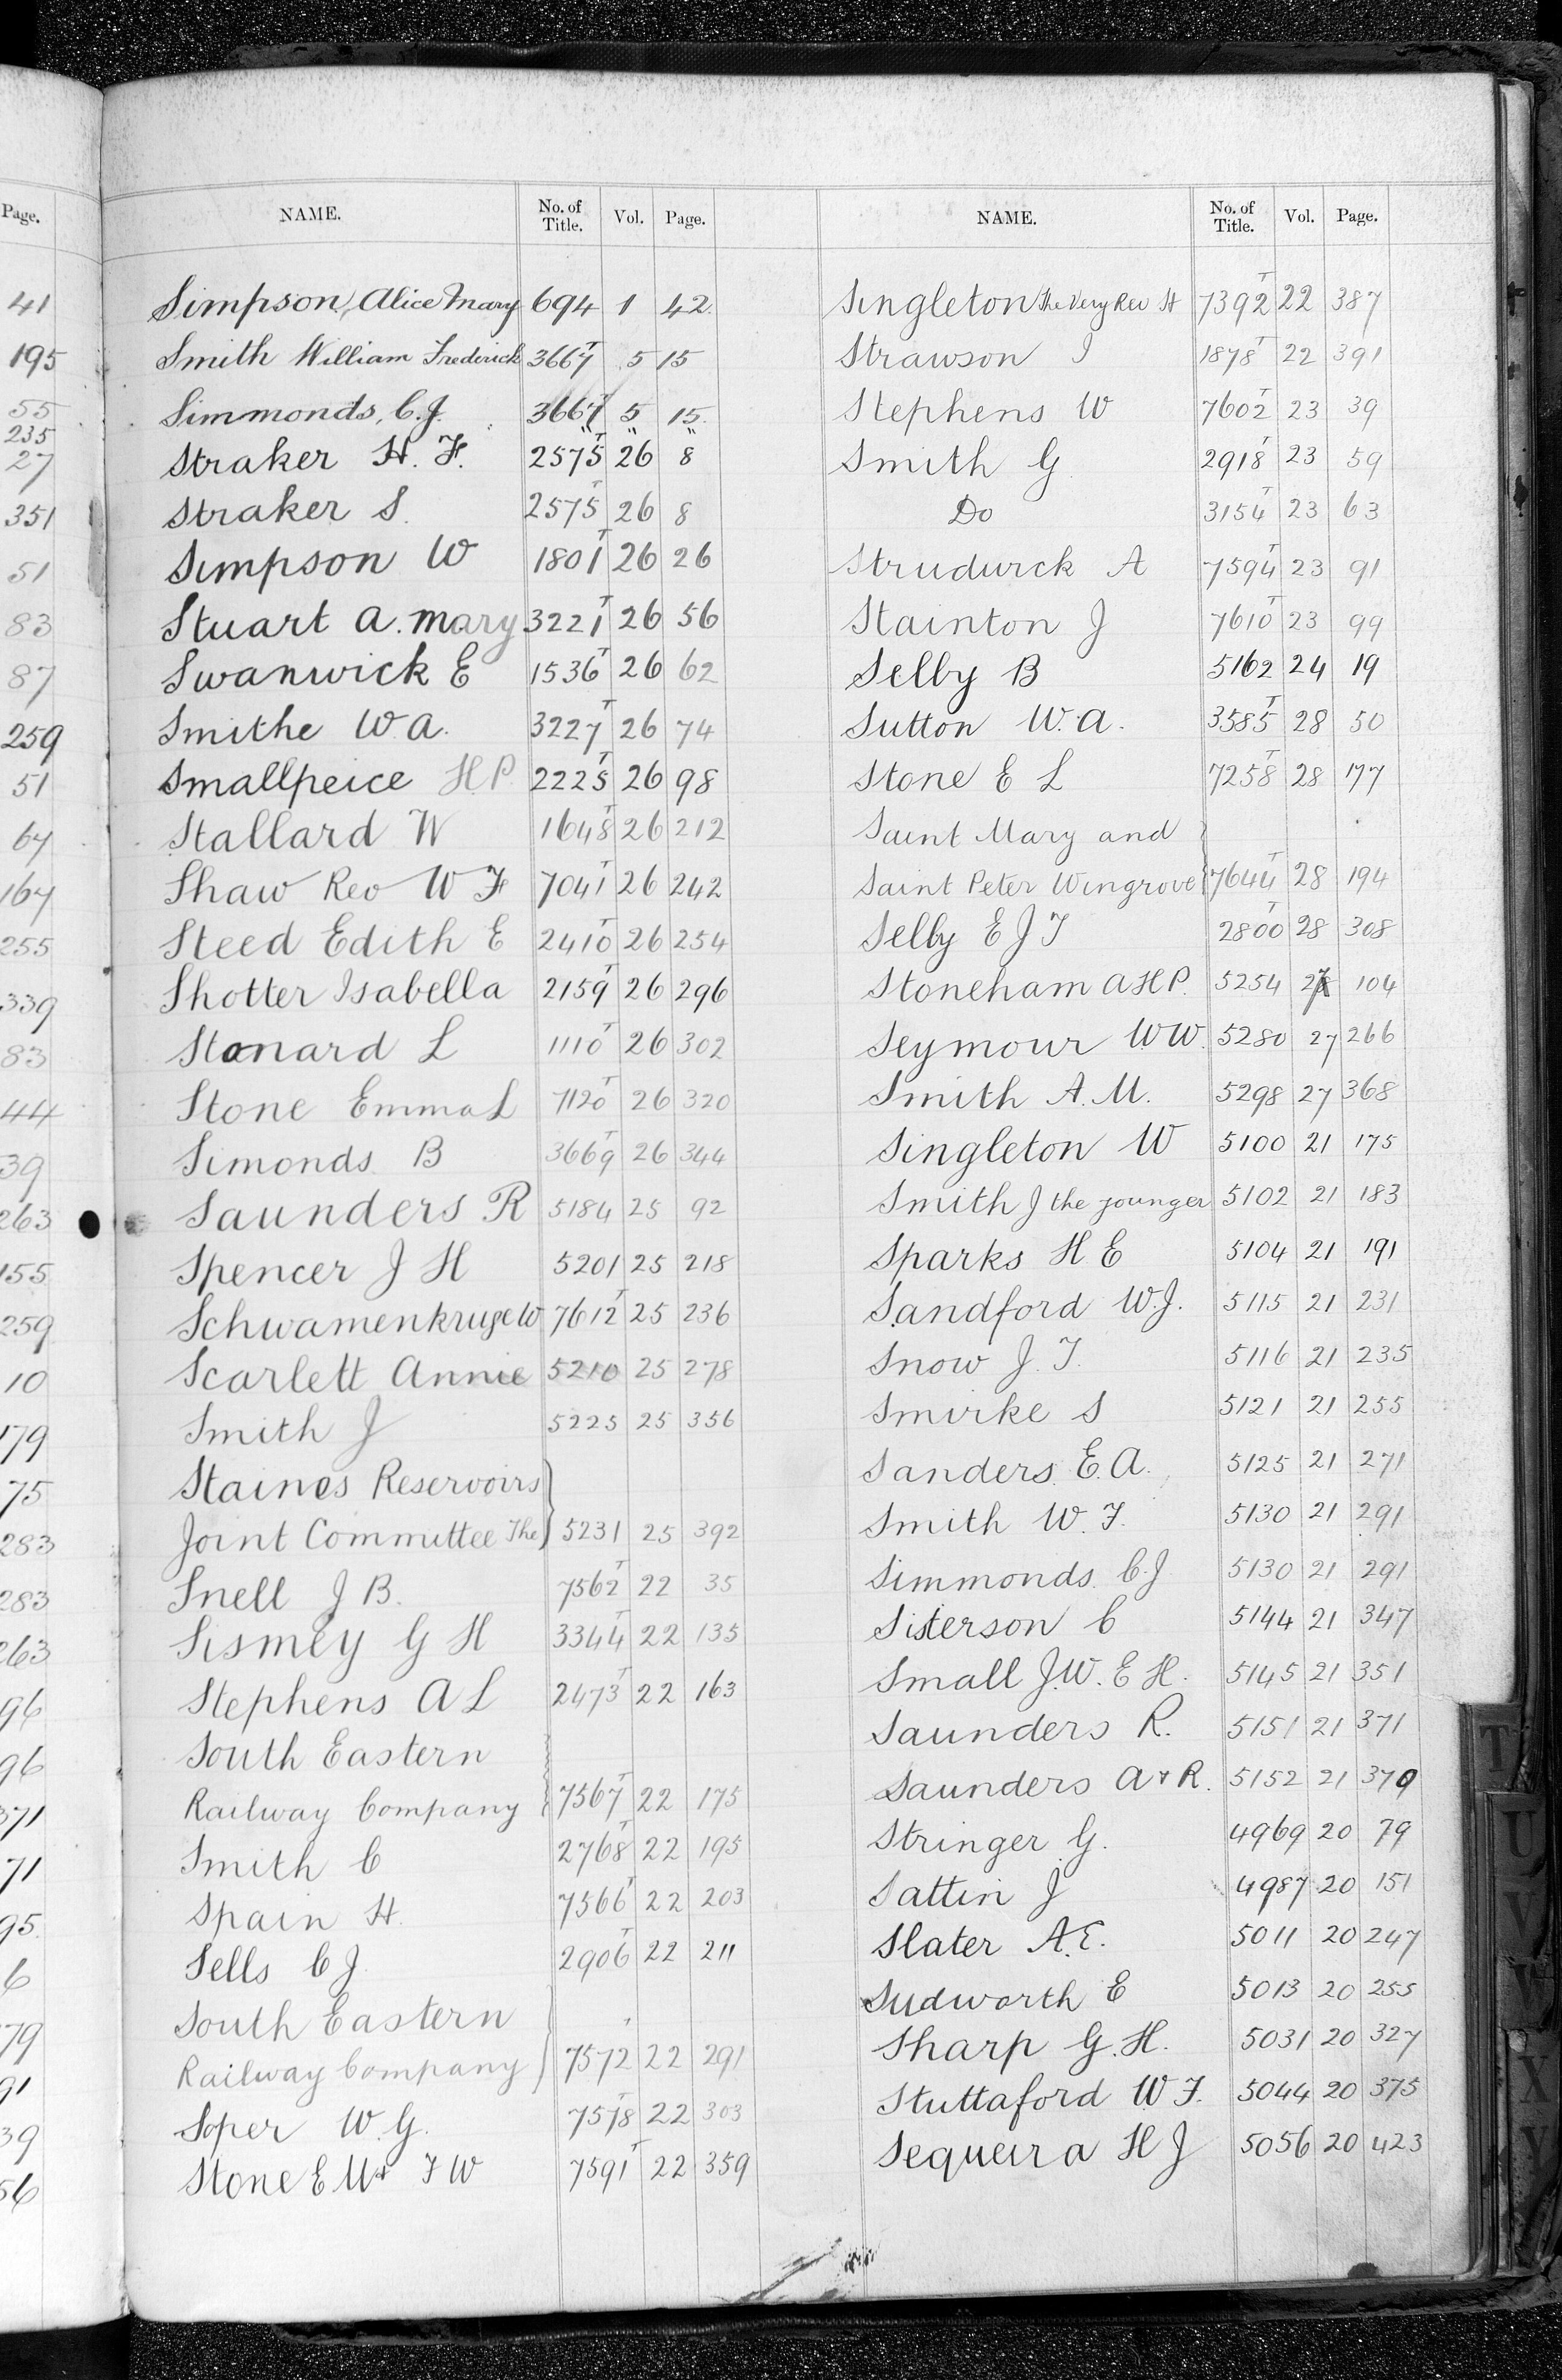 Page.
41
195
55
235
27
351
51
83
87
259
51
67
167
255
339
83
44
39
263
155
259
10
179
75
283
283
263
96
96
371
71
95
6
79
91
39
56
NAME. No. of Title. Vol. Page.
Simpson, Alice Mary 694 1 42
Smith William Frederick 3667T 5 15
Simmonds, C.J. 3667T 5 15
Straker H. F. 2575T 26 8
Straker S. 2575T 26 8
Simpson W 1801T 26 26
Stuart A. Mary 3221T 26 56
Swanwick E 1536T 26 62
Smithe W.A. 3227T 26 74
Smallpeice H P 2225T 26 98
Stallard W 1648T 26 212
Shaw Rev W F 7041T 26 242
Steed Edith E 2410T 26 254
Shotter Isabella 2159T 26 296
Stonard L 1110T 26 302
Stone Emma L 7120T 26 320
Simonds B 3669T 26 344
Saunders R 5184 25 92
Spencer J H 5201 25 218
Schwamenkruge W 7612T 25 236
Scarlett Annie 5210 25 278
Smith J 5225 25 356
Staines Reservoirs
Joint Committee The 5231 25 392
Snell J B. 7562T 22 35
Sismey G H 3344T 22 135
Stephens A L 2473T 22 163
South Eastern
Railway Company 7567T 22 175
Smith C 2768T 22 195
Spain H. 7566T 22 203
Sells C J. 2906T 22 211
South Eastern
Railway Company 7572 22 291
Soper W. G. 7578T 22 303
Stone E M & F W 7591T 22 359
NAME. No. of Title. Vol. Page.
Singleton The Very Rev H 7392T 22 387
Strawson I 1878T 22 391
Stephens W 7602T 23 39
Smith G 2918T 23 59
Do 3154T 23 63
Strudwick A 7594T 23 91
Stainton J 7610T 23 99
Selby B 5162 24 19
Sutton W. A. 3585T 28 50
Stone E L 7258T 28 177
Saint Mary and
Saint Peter Wingrove 7644T 28 194
Selby E J T 2800T 28 308
Stoneham A H P. 5254 27 104
Seymour W W. 5280 27 266
Smith A. M. 5298 27 368
Singleton W 5100 21 175
Smith J the younger 5102 21 183
Sparks H E 5104 21 191
Sandford W. J. 5115 21 231
Snow J. T. 5116 21 235
Smirke S 5121 21 255
Sanders E. A. 5125 21 271
Smith W. F. 5130 21 291
Simmonds C. J 5130 21 291
Sisterson C 5144 21 347
Small J. W. E H. 5145 21 351
Saunders R. 5151 21 371
Saunders A & R. 5152 21 379
Stringer G. 4969 20 79
Sattin J 4987 20 151
Slater A. E. 5011 20 247
Sudworth E 5013 20 255
Sharp G. H. 5031 20 327
Stuttaford W F. 5044 20 375
Sequeira H J 5056 20 423
T
U
V
W
X
Y